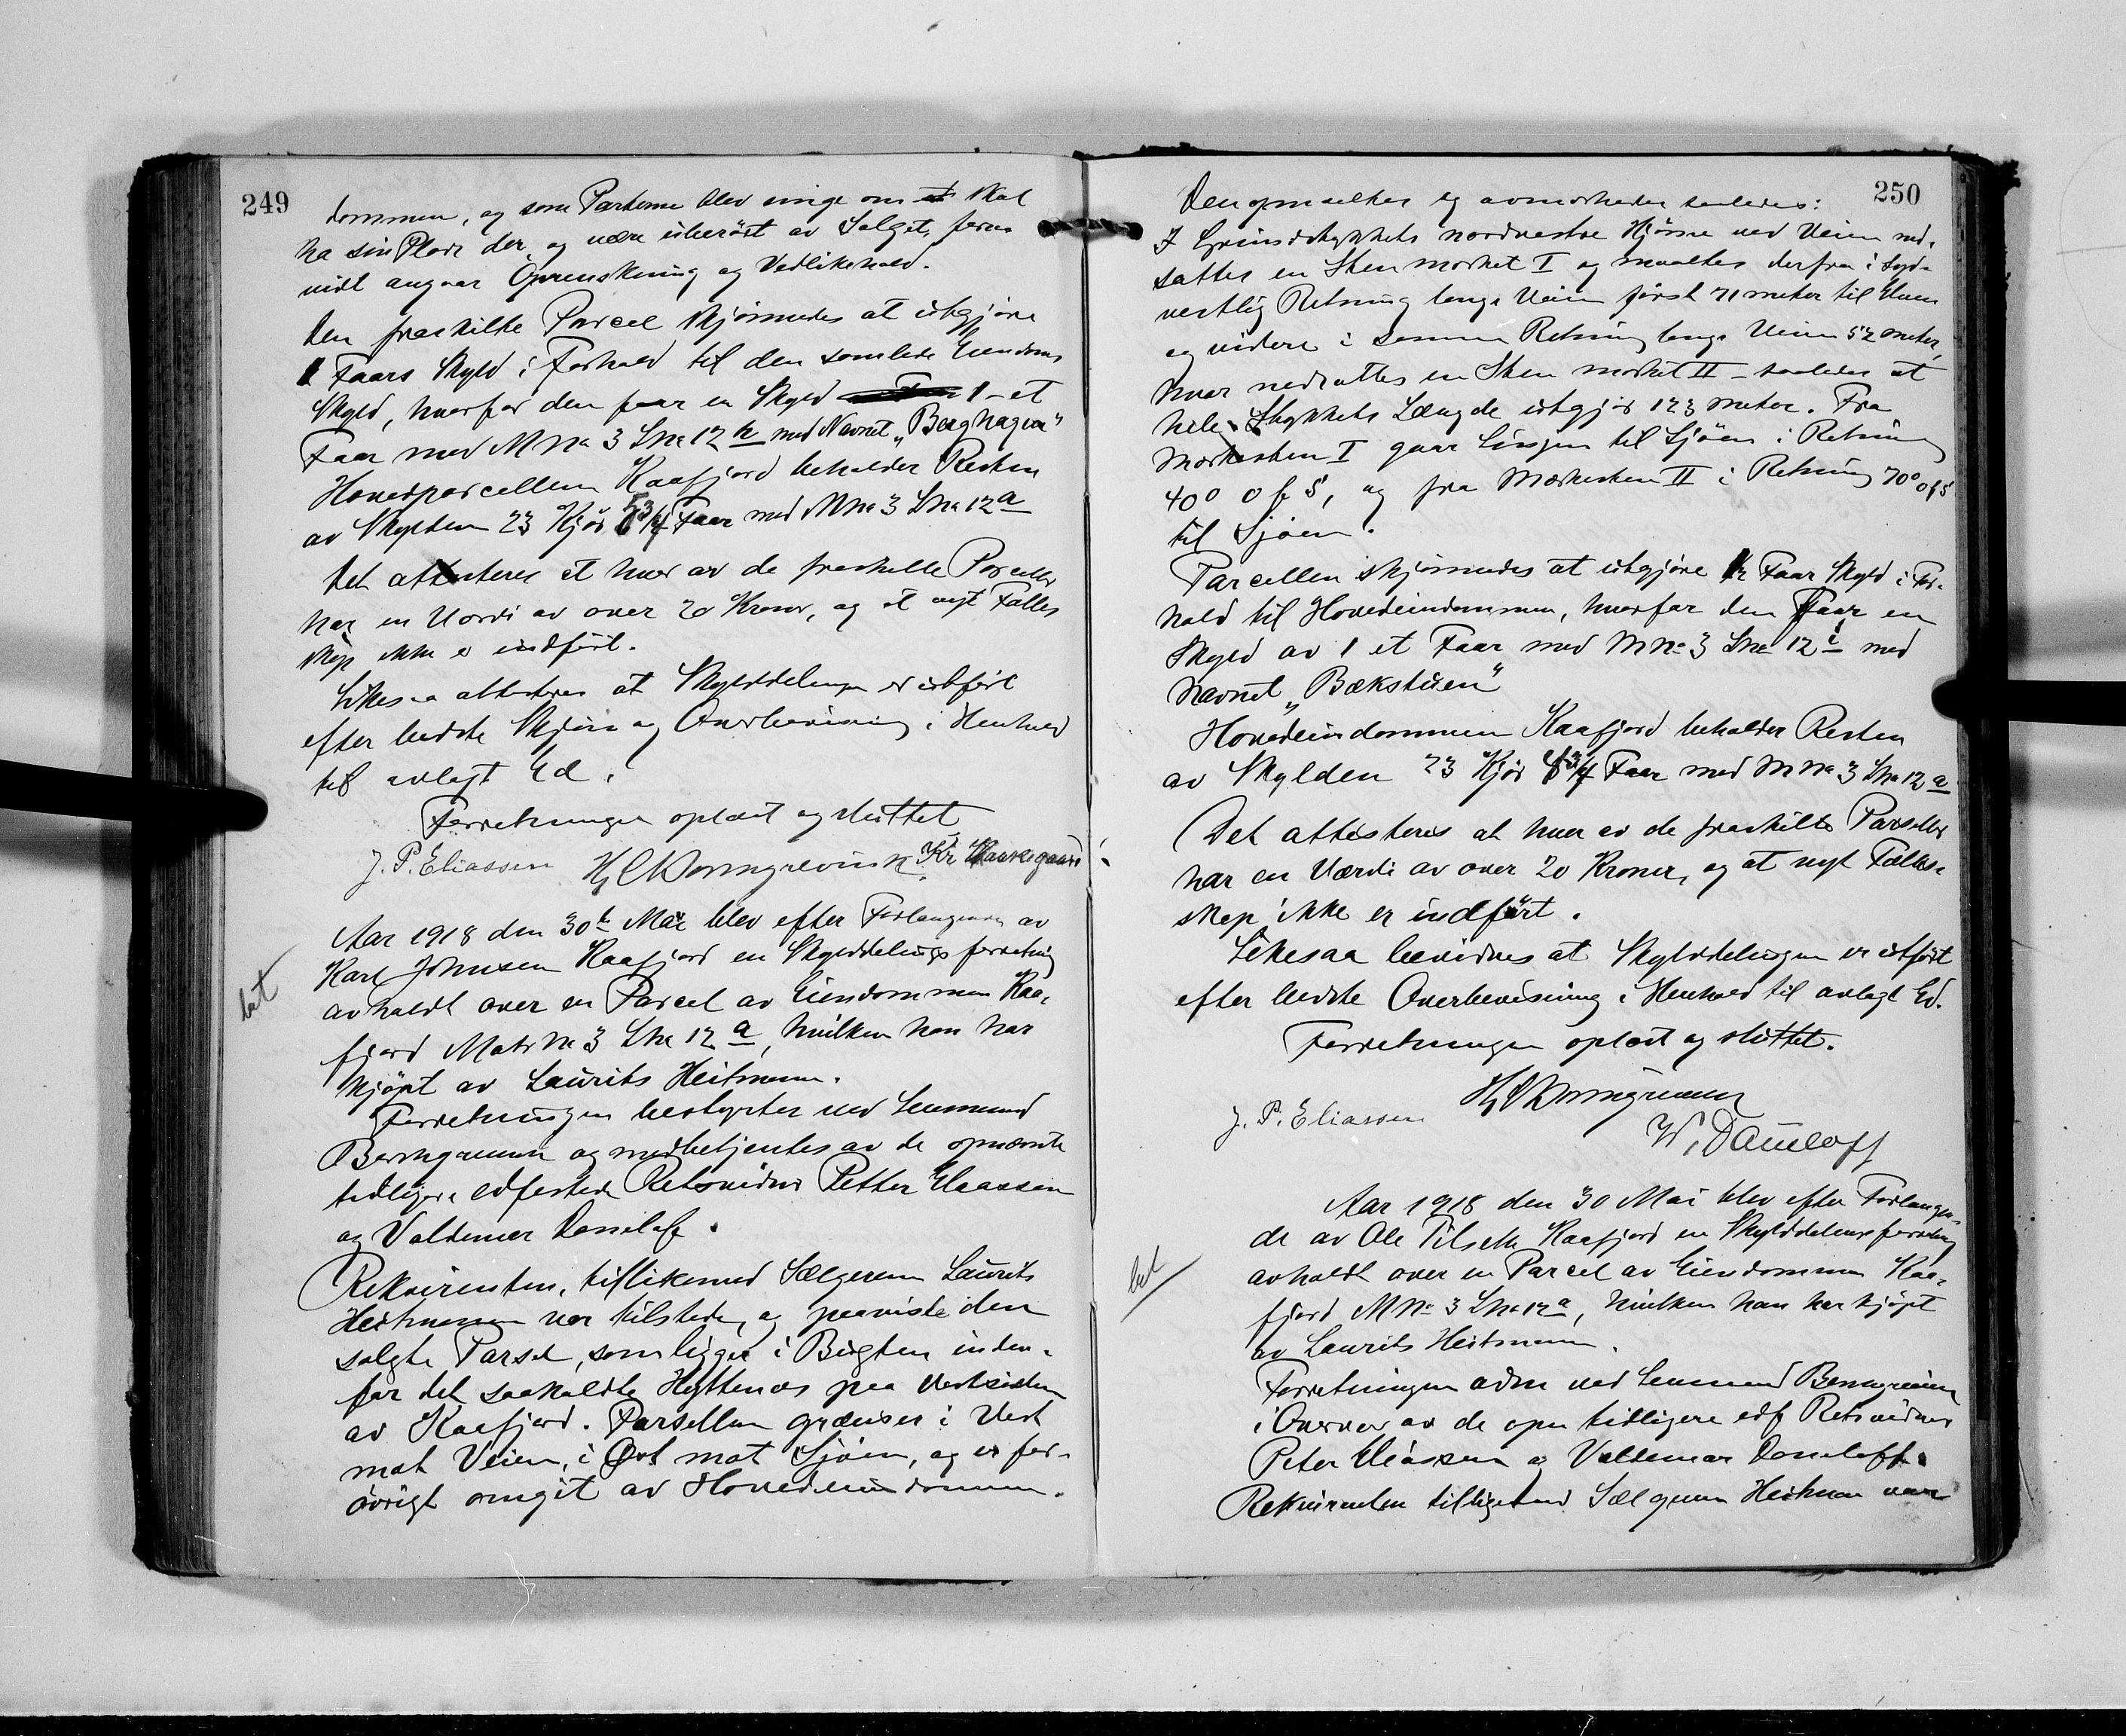 249
dommen, og som Parterne blev enige om at skal
ha sin Plads der, og være uberørt av Salget, forsaa
vidt angaar Oprenskning og Vedlikehold.
Den fraskilte Parcel skjønnedes at utgjøre
1 Faars Skyld i Forhold til den samlede Eiendoms
Skyld, hvorfor den faar en Skyld 1 - et
Faar med M No 3 Lno 12 h med Navnet "Berghagen"
Hovedparcellen Kaafjord beholder Resten
av Skylden 23 Kjør 5 3/4 Faar med Mno 3 Lno 12 a
Det attesteres at hver av de fraskilte Parceller
har en Værdi av over 20 Kroner, og at nyt Fælles
skap ikke er indført.
Likesaa attesteres at Skylddelingen er utført
efter bedste Skjøn og Overbevisning i Henhold
til avlagt Ed.
Forretningen oplæst og sluttet
J. P. Eliassen Kr
Aar 1918 den 30te Mai blev efter Forlangende av
Karl Johnsen Kaafjord en Skylddelingsforretning
bet
avholdt over en Parcel av Eiendommen Kaa-
fjord Matr No 3 Lno 12 a, hvilken han har
kjøpt av Laurits Heitmann.
Forretningen bestyrtes ved Lensmand
og medbetjentes av de opnævnte
tidligere edfestede Retsvidner Petter Eliassen
og Valdemar Daniloff.
Rekvirenten, tillikemed Sælgeren Laurits
Heitmann var tilstede, og paaviste den
solgte Parsel, som ligger i Bugten inden-
for det saakaldte Hyttenæs paa Vestsiden
av Kaafjord. Parsellen grænser i Vest
mot Veien, i Øst mot Sjøen, og er for-
øvrigt omgit av Hovedeiendommen.
250
Den opmaaltes og avmerkedes saaledes:
I Grundstykkets nordvestre Hjørne ved Veien ned-
sattes en Sten merket I og maaltes derfra i syd-
vestlig Retning langs Veien først 71 meter til
og videre i samme Retning langs Veien 52 meter,
hvor nedsattes en Sten merket II - saaledes at
hele Stykkets Længde utgjør 123 meter. Fra
Merkesten I gaar Linjen til Sjøen i Retning
40° O f S, og fra Merkesten II i Retning 70° O f S
til Sjøen.
Parcellen skjønnedes at utgjøre 1 Faar Skyld i For-
hold til Hovedeiendommen, hvorfor den faar en
Skyld av 1 et Faar med M No 3 Lno 12 i med
Navnet "Bækstuen"
Hovedeiendommen Kaafjord beholder Resten
av Skylden 23 Kjør 3/4 Faar med M No 3 Lno 12 a
Det attesteres at hver av de fraskilte Parseller
har en Værdi av over 20 Kroner, og at nyt Fælles-
skap ikke er indført.
Likesaa bevidnes at Skylddelingen er utført
efter bedste Overbevisning i Henhold til avlagt Ed.
Forretningen oplæst og sluttet.
J. P. Eliassen
W. Daniloff
Aar 1918 den 30 Mai blev efter Forlangen-
de av Ole Kaafjord en Skylddelingsforretning
bet
avholdt over en Parcel av Eiendommen Kaa-
fjord M No 3 Lno 12 a, hvilken han har kjøpt
av Laurits Heitmann.
Forretningen adm ved Lensmand
i Overvær av de opn tidligere edf Retsvidner
Peter Eliassen og Valdemar Daniloff.
Rekvirenten tilligemed Sælgeren Heitman var